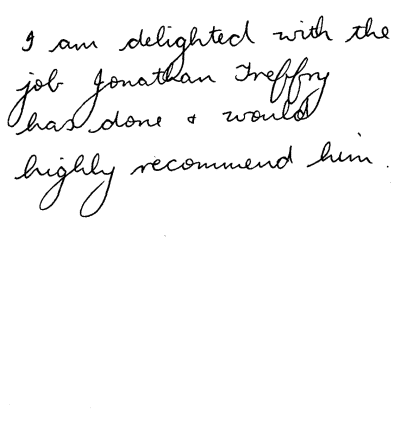 I am delighted with the
job Jonathan Treffry
has done & would
highly recommend him.